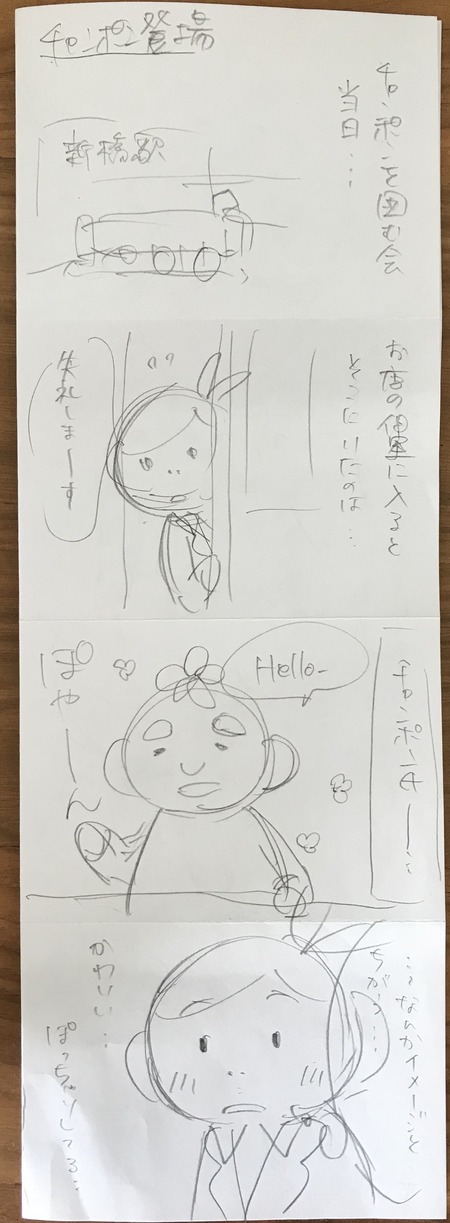 チャンポン登場
チャンポンを囲む会
当日…
新橋駅
お店の個室に入ると
そこにいたのは…
失礼しまーす
チャンポンさー…
Hello-
ぽやーん
…なんかイメージと
ちがう…
かわいい…
ぽっちゃりしてる…